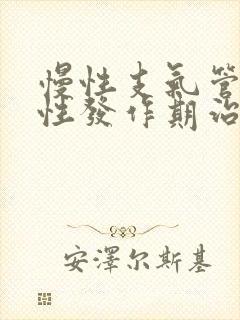 慢性支氣管
性發作期治
安澤尔斯基